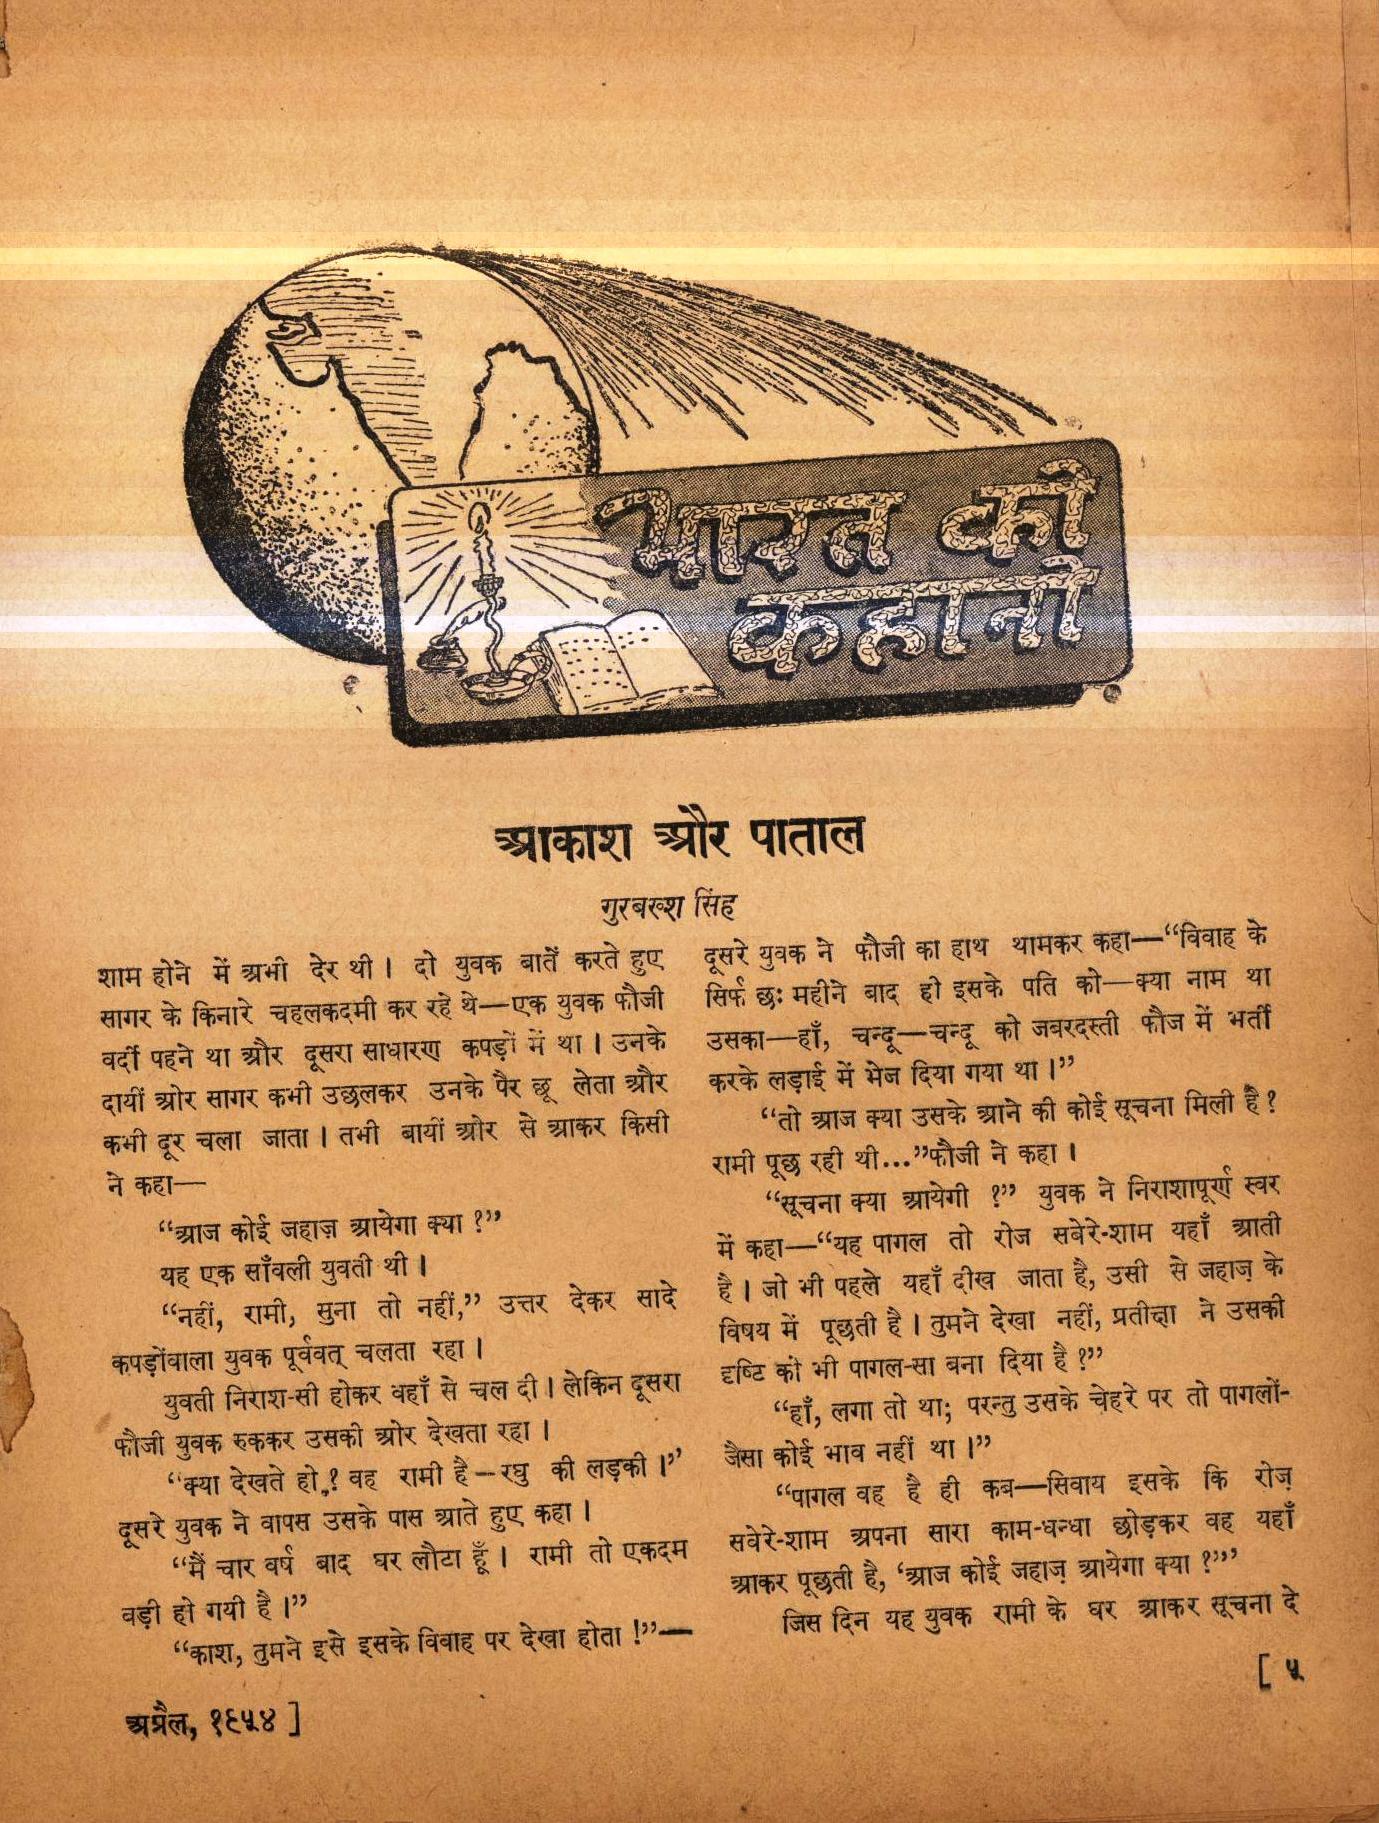 भारत की
कहानी
आकाश और पाताल
गुरबख्श सिंह
शाम होने में अभी देर थी। दो युवक बातें करते हुए
सागर के किनारे चहलकदमी कर रहे थे—एक युवक फौजी
वर्दी पहने था और दूसरा साधारण कपड़ों में था। उनके
दायीं ओर सागर कभी उछलकर उनके पैर छू लेता और
कभी दूर चला जाता। तभी बायीं ओर से आकर किसी
ने कहा—
“आज कोई जहाज़ आयेगा क्या?”
यह एक साँवली युवती थी।
“नहीं, रामी, सुना तो नहीं,” उत्तर देकर सादे
कपड़ोंवाला युवक पूर्ववत् चलता रहा।
युवती निराश-सी होकर वहाँ से चल दी। लेकिन दूसरा
फौजी युवक रुककर उसकी ओर देखता रहा।
“क्या देखते हो? वह रामी है—रघु की लड़की।”
दूसरे युवक ने वापस उसके पास आते हुए कहा।
“मैं चार वर्ष बाद घर लौटा हूँ। रामी तो एकदम
बड़ी हो गयी है।”
“काश, तुमने इसे इसके विवाह पर देखा होता!”—
दूसरे युवक ने फौजी का हाथ थामकर कहा—“विवाह के
सिर्फ छः महीने बाद ही इसके पति को—क्या नाम था
उसका—हाँ, चन्दू—चन्दू को जबरदस्ती फौज में भर्ती
करके लड़ाई में भेज दिया गया था।”
“तो आज क्या उसके आने की कोई सूचना मिली है?
रामी पूछ रही थी...”फौजी ने कहा।
“सूचना क्या आयेगी ?” युवक ने निराशापूर्ण स्वर
में कहा—“यह पागल तो रोज सबेरे-शाम यहाँ आती
है। जो भी पहले यहाँ दीख जाता है, उसी से जहाज़ के
विषय में पूछती है। तुमने देखा नहीं, प्रतीक्षा ने उसकी
दृष्टि को भी पागल-सा बना दिया है?”
“हाँ, लगा तो था; परन्तु उसके चेहरे पर तो पागलों-
जैसा कोई भाव नहीं था।”
“पागल वह है ही कब—सिवाय इसके कि रोज़
सवेरे-शाम अपना सारा काम-धन्धा छोड़कर वह यहाँ
आकर पूछती है, ‘आज कोई जहाज़ आयेगा क्या?’”
जिस दिन यह युवक रामी के घर आकर सूचना दे
[ ५
अप्रैल, १९५४ ]